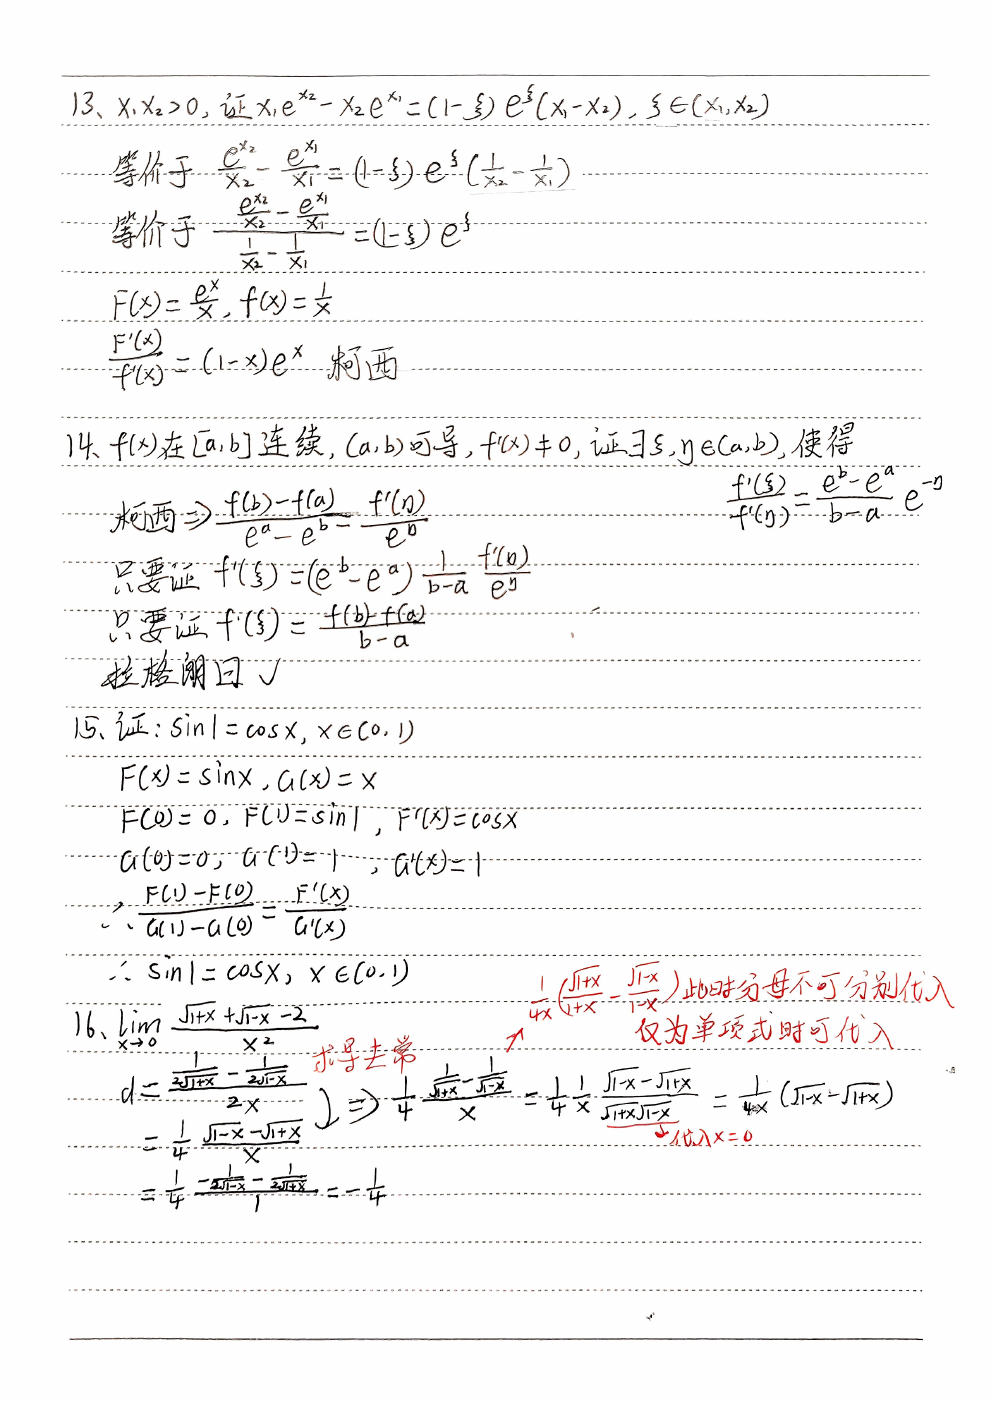 13、x₁x₂>0, 证 x₁e^{x₂}-x₂e^{x₁}=(1-ξ)e^ξ(x₁-x₂), ξ∈(x₁,x₂)
等价于 \frac{e^{x₂}}{x₂}-\frac{e^{x₁}}{x₁}=(1-ξ)e^ξ(\frac{1}{x₂}-\frac{1}{x₁})
等价于 \frac{\frac{e^{x₂}}{x₂}-\frac{e^{x₁}}{x₁}}{\frac{1}{x₂}-\frac{1}{x₁}}=(1-ξ)e^ξ
F(x)=\frac{e^x}{x}, f(x)=\frac{1}{x}
\frac{F'(x)}{f'(x)}=(1-x)e^x 柯西
14、f(x)在[a,b]连续, (a,b)可导, f'(x)≠0, 证∃ξ,η∈(a,b), 使得
\frac{f'(ξ)}{f'(η)}=\frac{e^b-e^a}{b-a}e^{-η}
柯西⇒\frac{f(b)-f(a)}{e^a-e^b}=\frac{f'(η)}{e^η}
只要证 f'(ξ)=(e^b-e^a)\frac{1}{b-a}\frac{f'(η)}{e^η}
只要证 f'(ξ)=\frac{f(b)-f(a)}{b-a}
拉格朗日✓
15、证: sin1=cosx, x∈(0,1)
F(x)=sinx, G(x)=x
F(0)=0, F(1)=sin1, F'(x)=cosx
G(0)=0, G(1)=1, G'(x)=1
∴\frac{F(1)-F(0)}{G(1)-G(0)}=\frac{F'(x)}{G'(x)}
∴ sin1=cosx, x∈(0,1)
\frac{1}{4x}(\frac{\sqrt{1+x}}{1+x}-\frac{\sqrt{1-x}}{1-x})此时分母不可分别代入
仅为单项式时可代入
16、\lim_{x→0}\frac{\sqrt{1+x}+\sqrt{1-x}-2}{x^2}
求导去常
d=\frac{\frac{1}{2\sqrt{1+x}}-\frac{1}{2\sqrt{1-x}}}{2x} ⇒\frac{1}{4}\frac{\frac{1}{\sqrt{1+x}}-\frac{1}{\sqrt{1-x}}}{x}=\frac{1}{4}\frac{1}{x}\frac{\sqrt{1-x}-\sqrt{1+x}}{\sqrt{1+x}\sqrt{1-x}}=\frac{1}{4x}(\sqrt{1-x}-\sqrt{1+x})
代入x=0
=\frac{1}{4}\frac{\sqrt{1-x}-\sqrt{1+x}}{x}
=\frac{1}{4}\frac{-\frac{1}{2\sqrt{1-x}}-\frac{1}{2\sqrt{1+x}}}{1}=-\frac{1}{4}